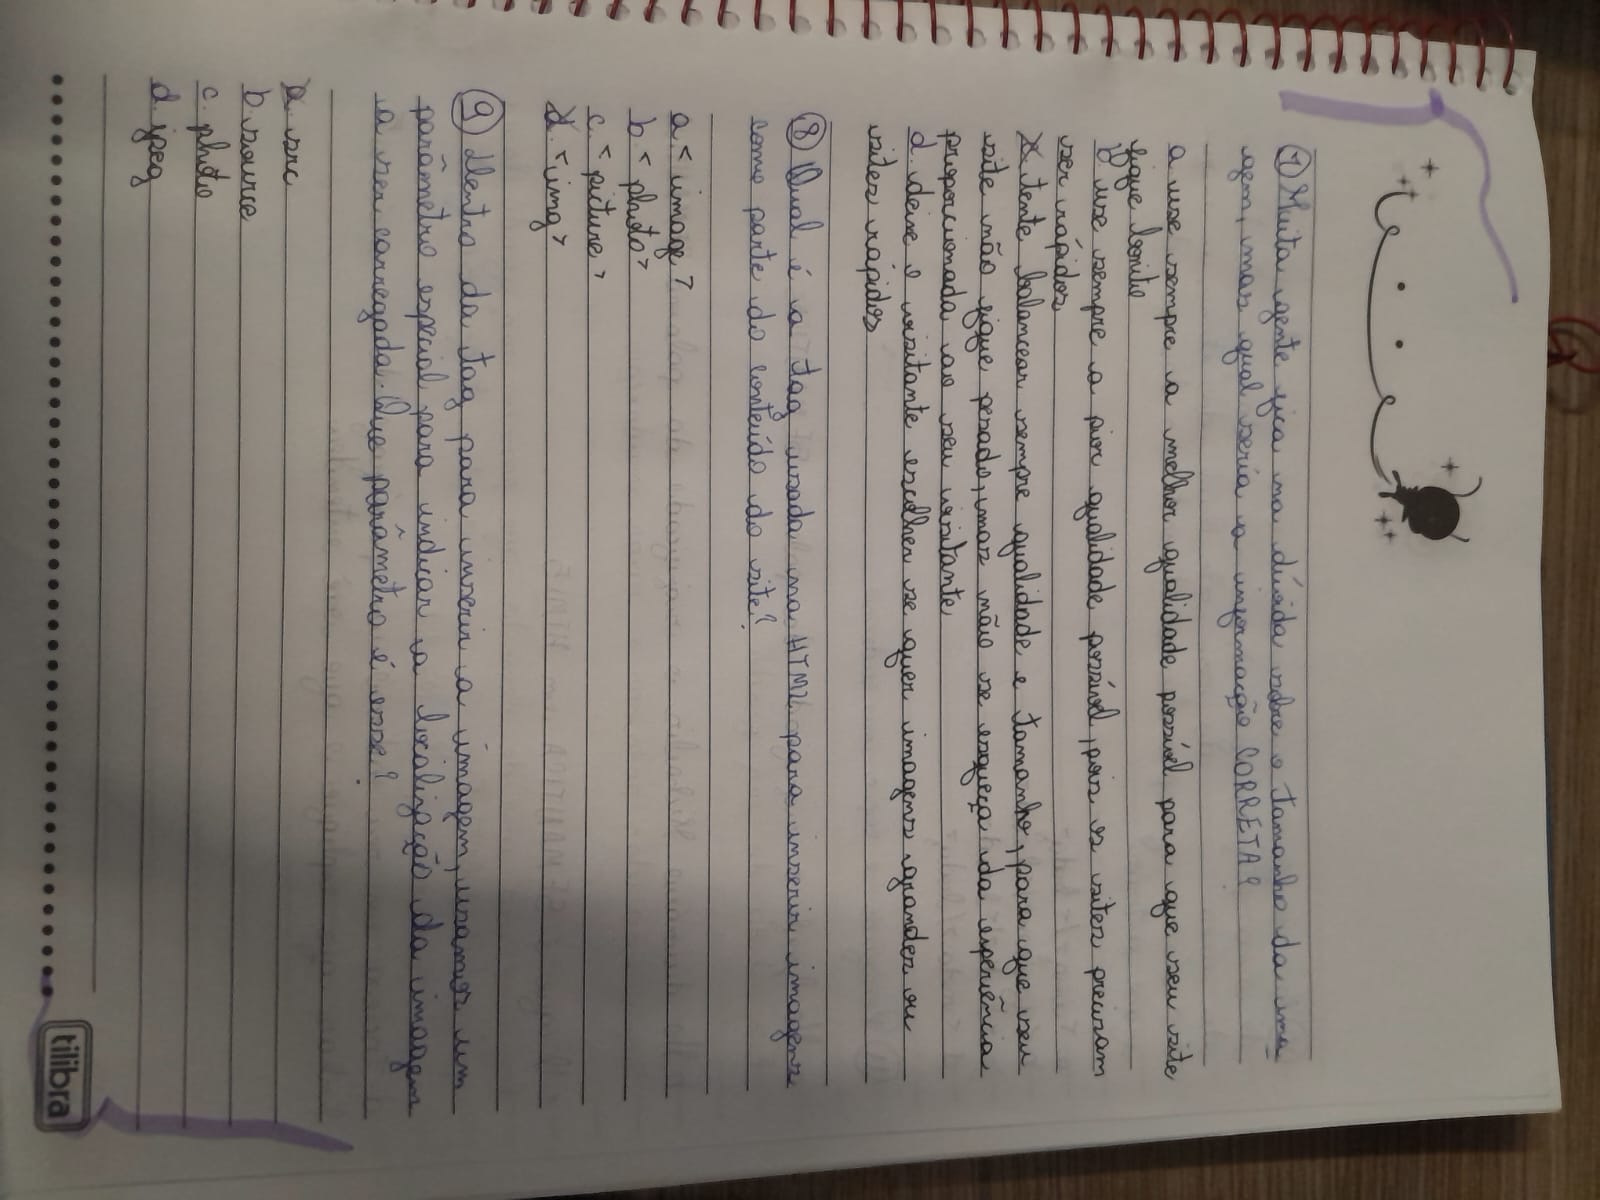 ⑦ Muita gente fica na dúvida sobre o tamanho da ima
gem, mas qual seria a informação CORRETA?
a use sempre a melhor qualidade possível para que seu site
fique bonito
b use sempre a pior qualidade possível, pois os sites precisam
ser rápidos
X tente balancear sempre qualidade e tamanho, para que seu
site não fique pesado, mas não se esqueça da experiência
proporcionada ao seu visitante
d. deixe o visitante escolher se quer imagens grandes ou
sites rápidos
⑧ Qual é a tag usada na HTML para inserir imagens
como parte do conteúdo do site?
a. < image >
b. < photo >
c. < picture >
d. < img >
⑨ Dentro da tag para inserir a imagem, usamos um
parâmetro especial para indicar a localização da imagem
a ser carregada. Que parâmetro é esse?
a. src
b. source
c. photo
d. jpeg
tilibra